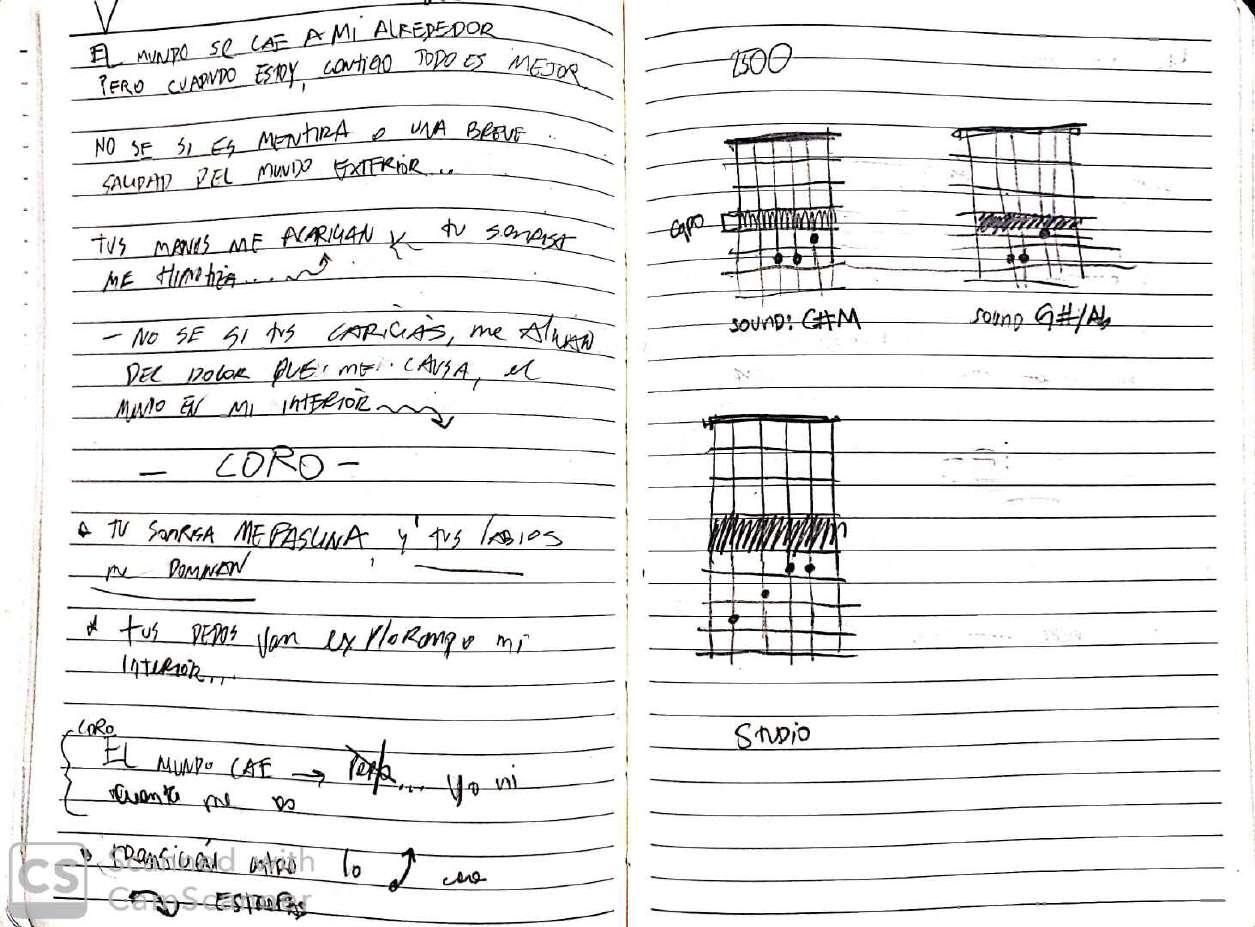 EL MUNDO SE CAE A MI ALREDEDOR
PERO CUANDO ESTOY, CONTIGO TODO ES MEJOR
NO SE SI ES MENTIRA O UNA BREVE
SALIDAD DEL MUNDO EXTERIOR...
TUS MANOS ME ACARICIAN TU SONRISA
ME
- NO SE SI TUS CARICIAS, me ALIVIAN
DEL DOLOR QUE ME CAUSA, el
MUNDO EN MI INTERIOR
- CORO -
TU SONRISA ME FASCINA, y tus labios
me DOMINAN
tus DEDOS van explorando mi
INTERIOR...
CORO
EL MUNDO CAE → Pero... yo ni
cuenta me do
transición otro lo
ESTROFAS
Scanned with
CS CamScanner
2500
capo
SOUND: C#M
SOUND G#/Ab
STUDIO